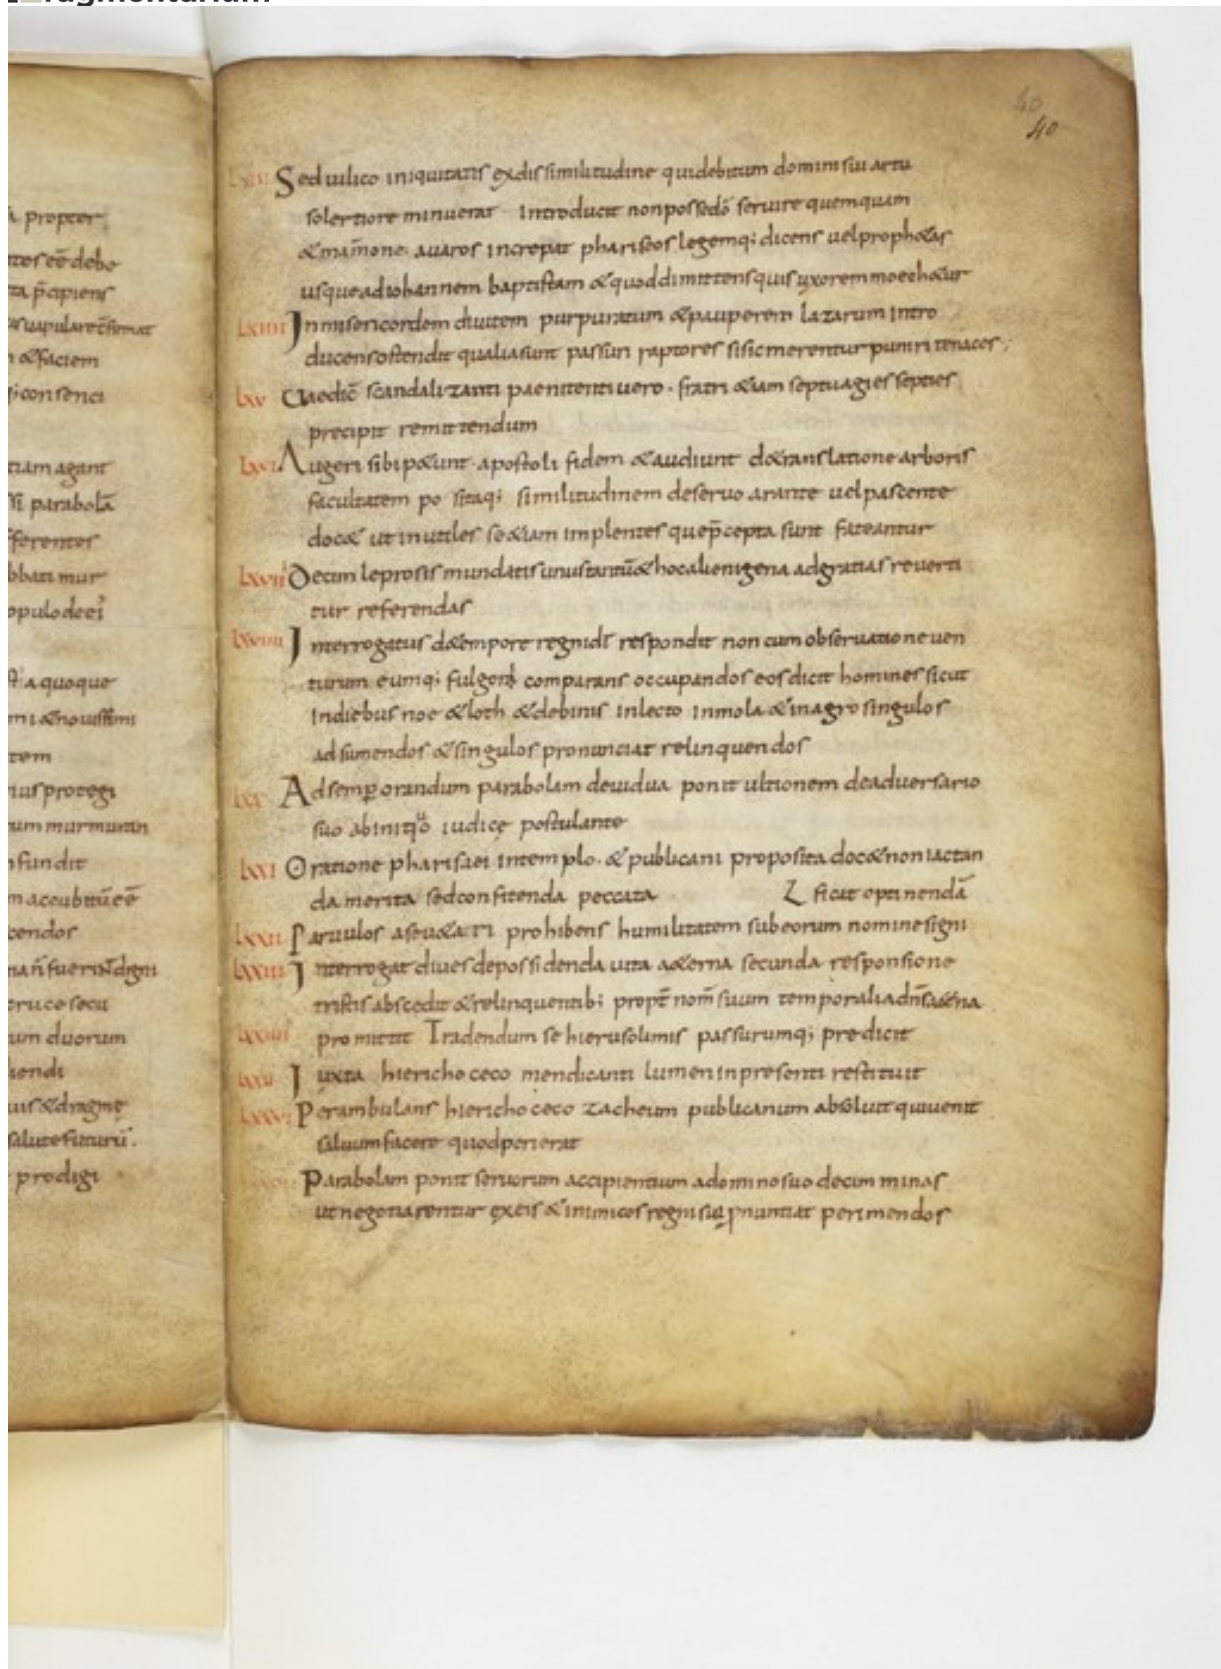 fragmentarium
40
40
a propter
tor eē debe
ta p̄cipiens
uapulare c̄firmat
& faciem
consenci
tiam agant
si parabolā
ferentes
bbati mur
opulo dei
a quoque
mi & nouissimi
tem
ius protegi
um murmuran
n fundit
m accubitū eē
cendos
fuerint digni
cruce secu
um duorum
iendi
uis & dragmę
salute futurū.
prodigi
Sed uilico iniquitatis ex dissimilitudine qui debitum domini sui actu
solertiore minuerat Introducit non posse dō seruire quemquam
& mam̄one. auaros increpat phariseos legemq; dicens uel proph&as
usque ad iohannem baptistam & quod dimittens quis uxorem moech&ur
LXIIII Inmisericordem diuitem purpuratum & pauperem lazarum intro
ducens ostendit qualia sunt passuri raptores si sic merentur puniri tenaces;
LXV Uae dic̄ scandalizanti paenitenti uero. fratri &iam septuagies septies
precipit remittendum
LXVI Augeri sibi p&unt. apostoli fidem & audiunt d& translatione arboris
facultatem po sitaq; similitudinem de seruo arante uel pascente
doc& ut inutiles se &iam implentes que p̄cepta sunt fateantur
LXVII Decim leprosis mundatis unus tantū & hoc alienigena ad gratias reuerti
tur referendas
LXVIIII Interrogatus d& tempore regni dī respondit non cum obseruatione uen
turum eumq; fulgori comparans occupandos eos dicit homines sicut
In diebus noe & loth & de binis in lecto in mola & in agro singulos
ad sumendos & singulos pronunciat relinquendos
LXX Ad semp̱ orandum parabolam de uidua ponit ultionem de aduersario
suo ab iniquo iudice postulante
LXXI Oratione pharisaei in templo. & publicani proposita doc& non iactan
da merita sed confitenda peccata ficat optinendā
LXXII Paruulos a se u&ari prohibens humilitatem sub eorum nomine signi
LXXIII Interrogat diues de possidenda uita a&erna secunda responsione
tristis abscedit & relinquentib; propt̄ nom̄ suum temporalia
LXXIIII promittit Tradendum se hierusolimis passurumq; predicit
LXXV Iuxta hiericho ceco mendicanti lumen in presenti restituit
LXXVI Perambulans hiericho ceco zacheum publicanum absoluit qui uenit
saluum facere quod perierat
Parabolam ponit seruorum accipientium a domino suo decim minas
ut negotiarentur ex eis & inimicos regni sui pnuntiat perimendos